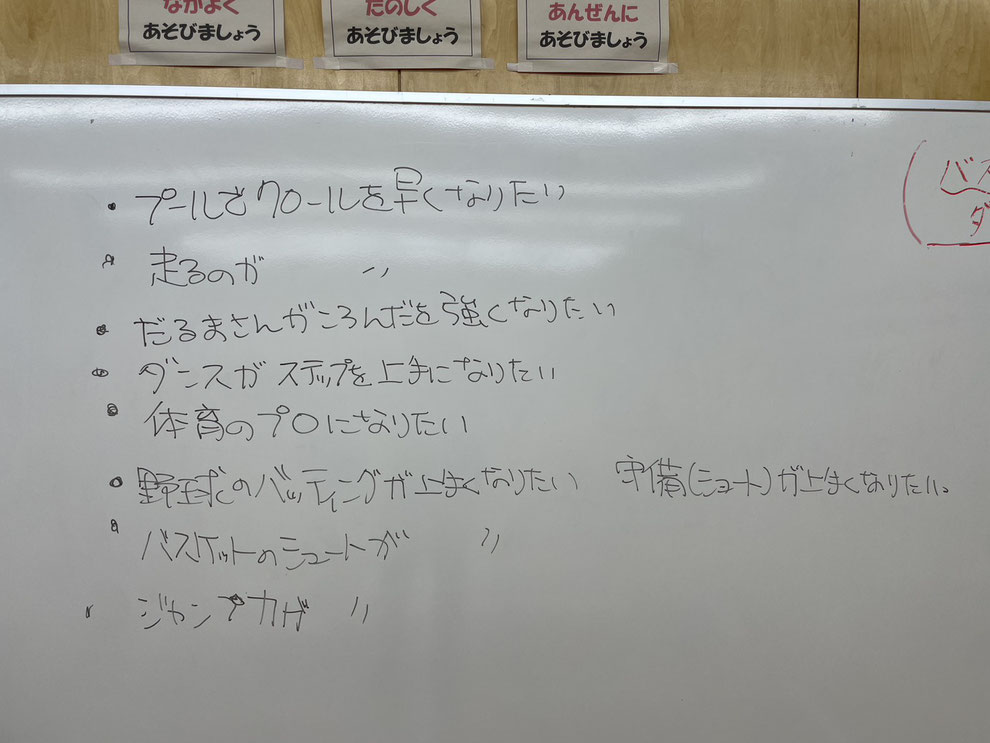 なかよく
あそびましょう
たのしく
あそびましょう
あんぜんに
あそびましょう
・プールでクロールを早くなりたい
・走るのが 〃
・だるまさんがころんだを強くなりたい
・ダンスがステップを上手になりたい
・体育のプロになりたい
・野球のバッティングが上まくなりたい 守備(ショート)が上まくなりたい。
・バスケットのシュートが 〃
・ジャンプ力が 〃
バス
ダ